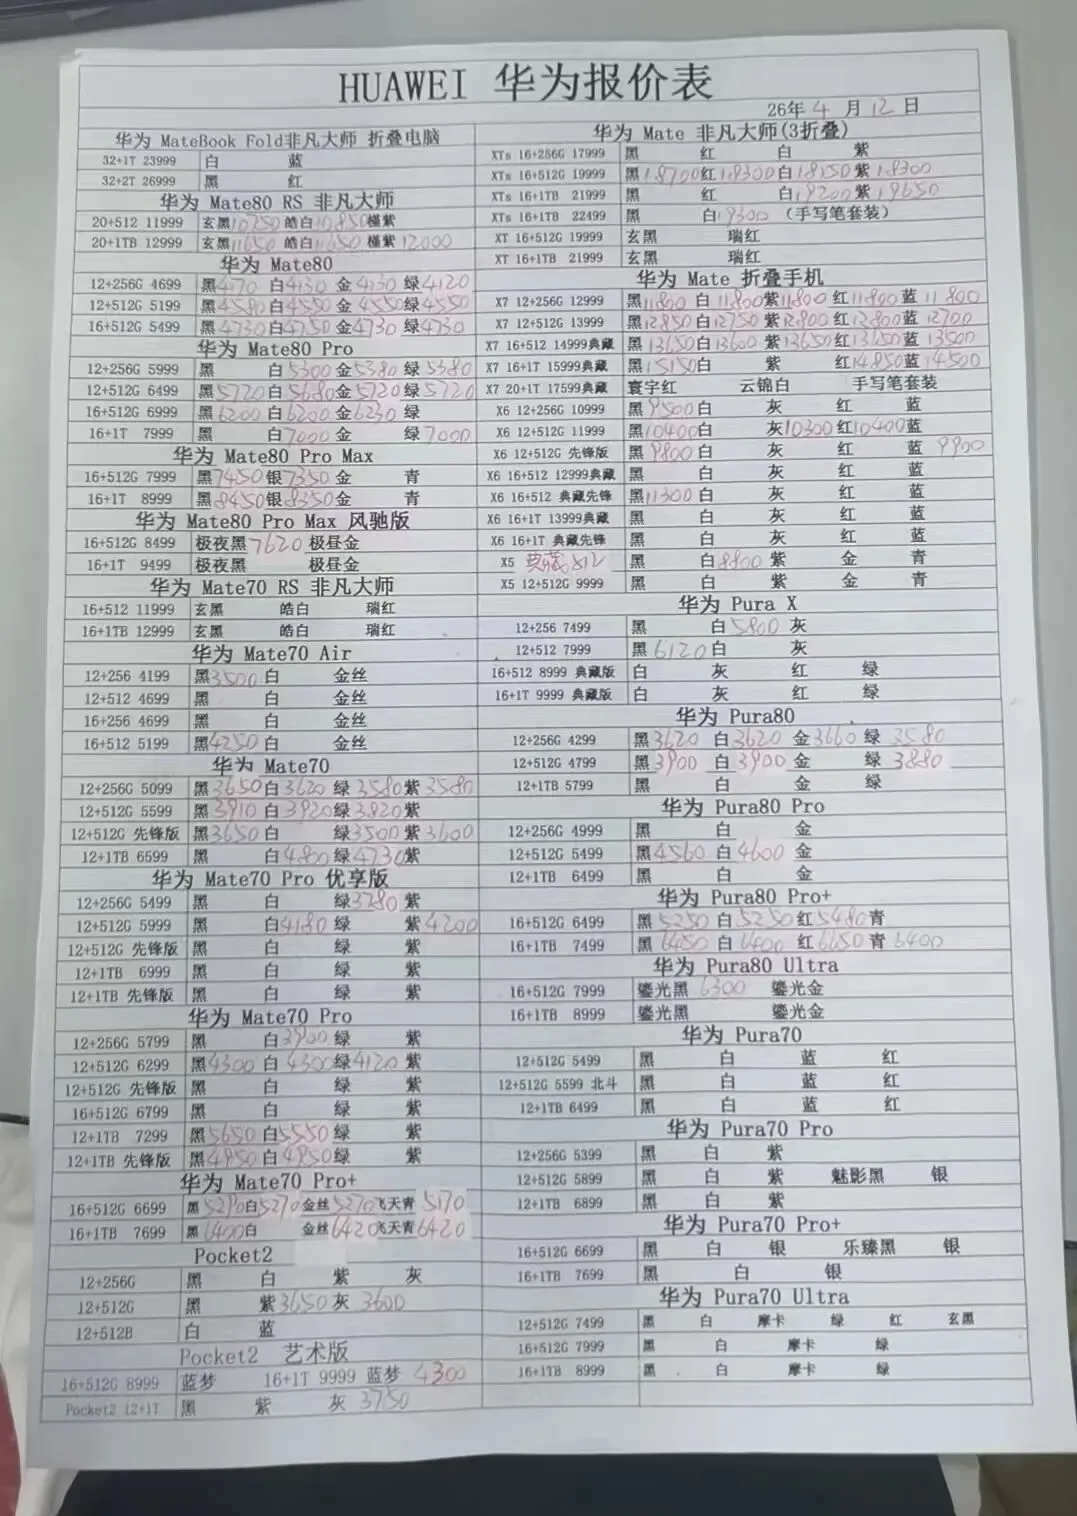 HUAWEI 华为报价表
26年 4 月 12 日
华为 MateBook Fold非凡大师 折叠电脑
32+1T 23999 白 蓝
32+2T 26999 黑 红
华为 Mate80 RS 非凡大师
20+512 11999 玄黑10750 皓白10850 槿紫
20+1TB 12999 玄黑11650 皓白11650 槿紫12000
华为 Mate80
12+256G 4699 黑4170 白4130 金4130 绿4120
12+512G 5199 黑4580 白4550 金4550 绿4550
16+512G 5499 黑4730 白4750 金4730 绿4730
华为 Mate80 Pro
12+256G 5999 黑 白5300 金5380 绿5380
12+512G 6499 黑5720 白5680 金5720 绿5720
16+512G 6999 黑6200 白6200 金6230 绿
16+1T 7999 黑 白7000 金 绿7000
华为 Mate80 Pro Max
16+512G 7999 黑7450 银7350 金 青
16+1T 8999 黑8450 银8350 金 青
华为 Mate80 Pro Max 风驰版
16+512G 8499 极夜黑7620 极昼金
16+1T 9499 极夜黑 极昼金
华为 Mate70 RS 非凡大师
16+512 11999 玄黑 皓白 瑞红
16+1TB 12999 玄黑 皓白 瑞红
华为 Mate70 Air
12+256 4199 黑3500 白 金丝
12+512 4699 黑 白 金丝
16+256 4699 黑 白 金丝
16+512 5199 黑4250 白 金丝
华为 Mate70
12+256G 5099 黑3650 白3620 绿3580 紫3580
12+512G 5599 黑3910 白3920 绿3820 紫
12+512G 先锋版 黑3650 白 绿3500 紫3600
12+1TB 6599 黑 白4800 绿4730 紫
华为 Mate70 Pro 优享版
12+256G 5499 黑 白 绿3780 紫
12+512G 5999 黑 白4180 绿 紫4200
12+512G 先锋版 黑 白 绿 紫
12+1TB 6999 黑 白 绿 紫
12+1TB 先锋版 黑 白 绿 紫
华为 Mate70 Pro
12+256G 5799 黑 白3900 绿 紫
12+512G 6299 黑4300 白4300 绿4120 紫
12+512G 先锋版 黑 白 绿 紫
16+512G 6799 黑 白 绿 紫
12+1TB 7299 黑5650 白5550 绿 紫
12+1TB 先锋版 黑4950 白4950 绿 紫
华为 Mate70 Pro+
16+512G 6699 黑5290 白5270 金丝5270 飞天青5170
16+1TB 7699 黑6400 白 金丝6420 飞天青6420
Pocket2
12+256G 黑 白 紫 灰
12+512G 黑 紫3650 灰3600
12+512B 白 蓝
Pocket2 艺术版
16+512G 8999 蓝梦 16+1T 9999 蓝梦 4300
Pocket2 12+1T 黑 紫 灰 3750
华为 Mate 非凡大师(3折叠)
XTs 16+256G 17999 黑 红 白 紫
XTs 16+512G 19999 黑18700 红18300 白18150 紫18300
XTs 16+1TB 21999 黑 红 白19200 紫19650
XTs 16+1TB 22499 黑 白19300 (手写笔套装)
XT 16+512G 19999 玄黑 瑞红
XT 16+1TB 21999 玄黑 瑞红
华为 Mate 折叠手机
X7 12+256G 12999 黑11800 白11800 紫11800 红11800 蓝11800
X7 12+512G 13999 黑12850 白12750 紫12800 红12800 蓝12700
X7 16+512 14999典藏 黑13650 白13600 紫13650 红13650 蓝13500
X7 16+1T 15999典藏 黑15150 白 紫 红14850 蓝14500
X7 20+1T 17599典藏 寰宇红 云锦白 手写笔套装
X6 12+256G 10999 黑9500 白 灰 红 蓝
X6 12+512G 11999 黑10400 白 灰10300 红10400 蓝
X6 12+512G 先锋版 黑9800 白 灰 红 蓝 9900
X6 16+512 12999典藏 黑 白 灰 红 蓝
X6 16+512 典藏先锋 黑11300 白 灰 红 蓝
X6 16+1T 13999典藏 黑 白 灰 红 蓝
X6 16+1T 典藏先锋 黑 白 灰 红 蓝
X5 典藏512 黑 白8800 紫 金 青
X5 12+512G 9999 黑 白 紫 金 青
华为 Pura X
12+256 7499 黑 白5800 灰
12+512 7999 黑6120 白 灰
16+512 8999 典藏版 白 灰 红 绿
16+1T 9999 典藏版 白 灰 红 绿
华为 Pura80
12+256G 4299 黑3620 白3620 金3660 绿3580
12+512G 4799 黑3900 白3900 金 绿3880
12+1TB 5799 黑 白 金 绿
华为 Pura80 Pro
12+256G 4999 黑 白 金
12+512G 5499 黑4560 白4600 金
12+1TB 6499 黑 白 金
华为 Pura80 Pro+
16+512G 6499 黑5250 白5250 红5480 青
16+1TB 7499 黑6450 白6400 红6650 青6400
华为 Pura80 Ultra
16+512G 7999 鎏光黑6300 鎏光金
16+1TB 8999 鎏光黑 鎏光金
华为 Pura70
12+512G 5499 黑 白 蓝 红
12+512G 5599 北斗 黑 白 蓝 红
12+1TB 6499 黑 白 蓝 红
华为 Pura70 Pro
12+256G 5399 黑 白 紫
12+512G 5899 黑 白 紫 魅影黑 银
12+1TB 6899 黑 白 紫
华为 Pura70 Pro+
16+512G 6699 黑 白 银 乐臻黑 银
16+1TB 7699 黑 白 银
华为 Pura70 Ultra
12+512G 7499 黑 白 摩卡 绿 红 玄黑
16+512G 7999 黑 白 摩卡 绿
16+1TB 8999 黑 白 摩卡 绿